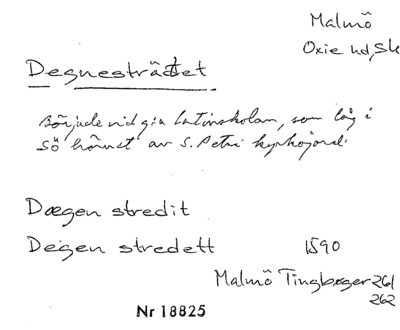 Malmö
Oxie hd, Sk
Degnesträdet
Började vid g:a Latinskolan, som låg i
SÖ hörnet av S. Petri kyrkogård.
Dægen stredit
Degen stredett 1590
Malmö Tingbøger 261
262
Nr 18825